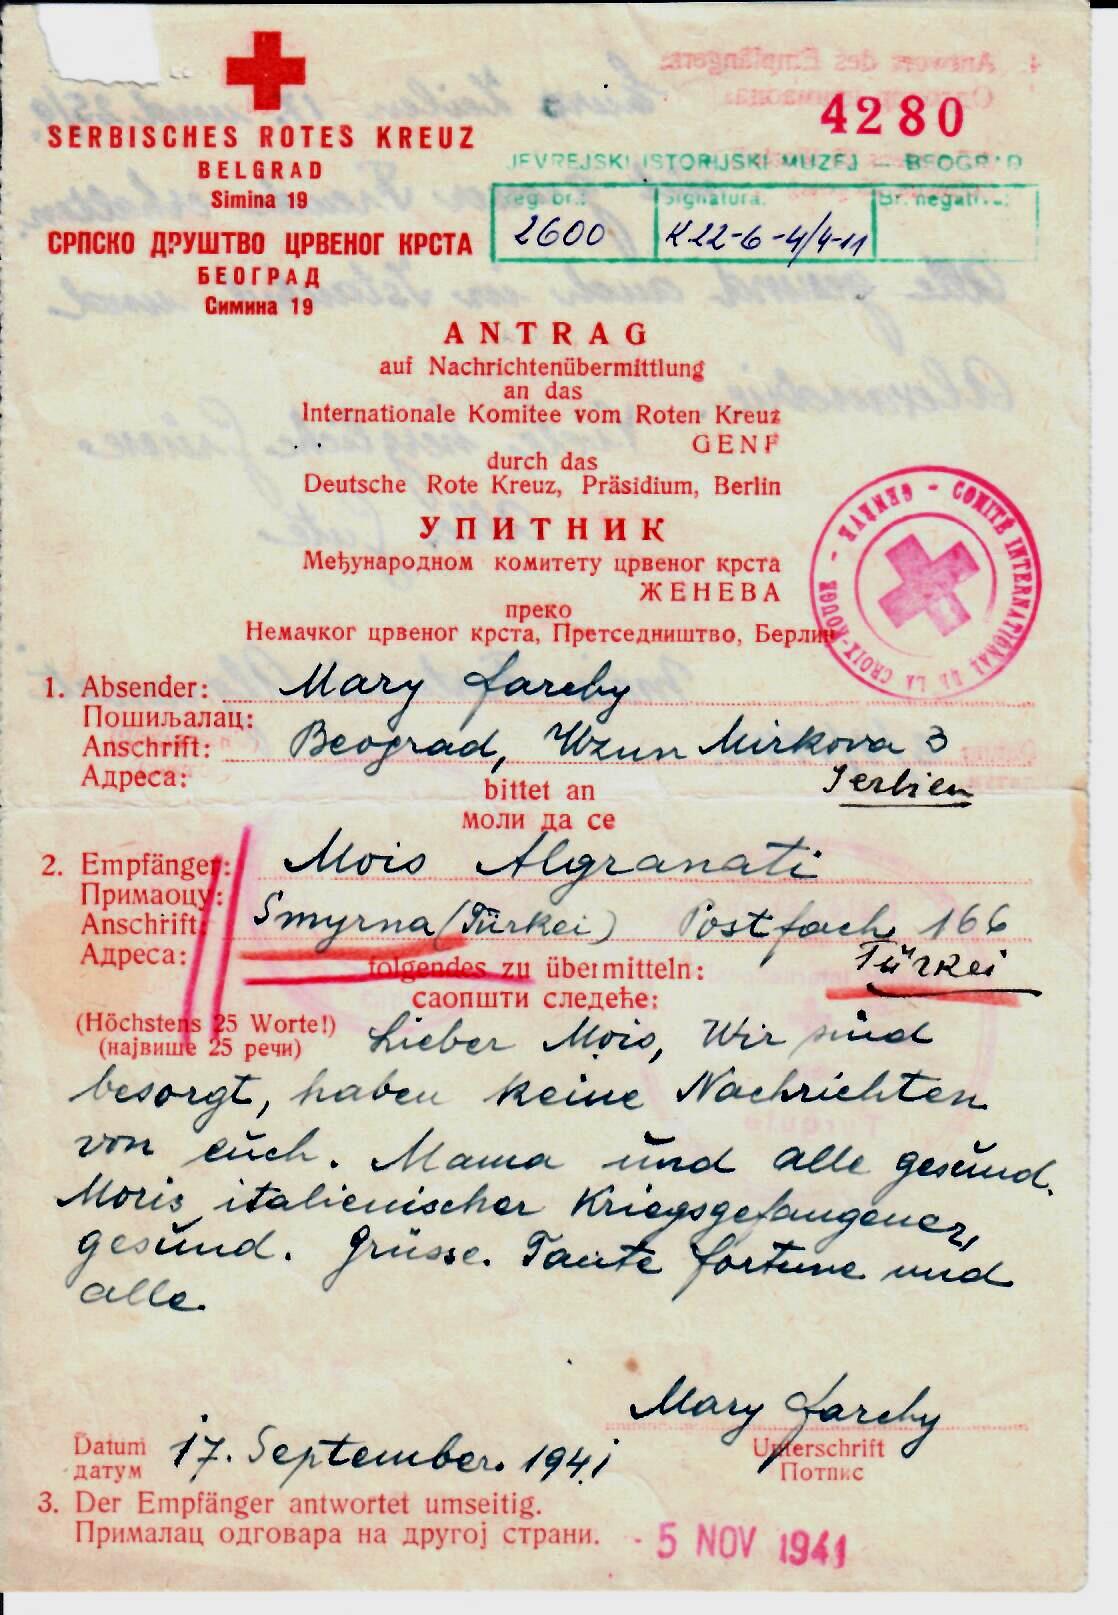 SERBISCHES ROTES KREUZ
BELGRAD
Simina 19
СРПСКО ДРУШТВО ЦРВЕНОГ КРСТА
БЕОГРАД
Симина 19
4280
JEVREJSKI ISTORIJSKI MUZEJ — BEOGRAD
reg. br.: Signatura: Br. negativa:
2600 K.22-6-4/4-11
ANTRAG
auf Nachrichtenübermittlung
an das
Internationale Komitee vom Roten Kreuz
GENF
durch das
Deutsche Rote Kreuz, Präsidium, Berlin
УПИТНИК
Међународном комитету црвеног крста
ЖЕНЕВА
преко
Немачког црвеног крста, Претседништво, Берлин
COMITÉ INTERNATIONAL DE LA CROIX-ROUGE - GENÈVE -
1. Absender: Mary Farchy
Пошиљалац:
Anschrift: Beograd, Uzun Mirkova 3
Адреса:
Serbien
bittet an
моли да се
2. Empfänger: Mois Algranati
Примаоцу:
Anschrift: Smyrna (Türkei) Postfach 166
Адреса:
Türkei
folgendes zu übermitteln:
саопшти следеће:
(Höchstens 25 Worte!)
(највише 25 речи)
Lieber Mois, Wir sind
besorgt, haben keine Nachrichten
von euch. Mama und alle gesund.
Moris italienischer Kriegsgefangener,
gesund. Grüsse. Tante Fortune und
alle.
Mary Farchy
Datum 17. September. 1941
датум
Unterschrift
Потпис
3. Der Empfänger antwortet umseitig.
Прималац одговара на другој страни.
- 5 NOV 1941